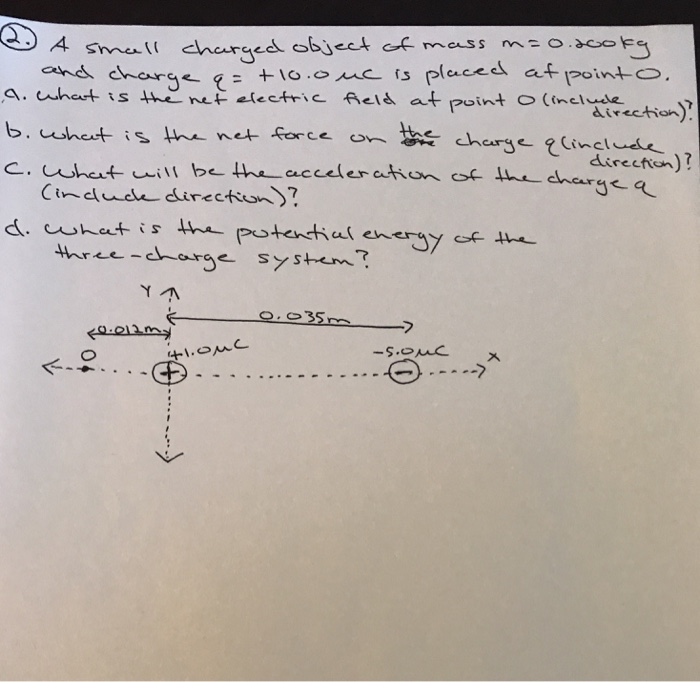 2. A small charged object of mass m=0.200kg
and charge q= +10.0 μC is placed at point O.
a. what is the net electric field at point O (include direction)?
b. what is the net force on the charge q (include direction)?
c. what will be the acceleration of the charge q
(include direction)?
d. what is the potential energy of the
three-charge system?
Y
0.035m
0.012m
O
+1.0μC
-5.0μC
X
+
−